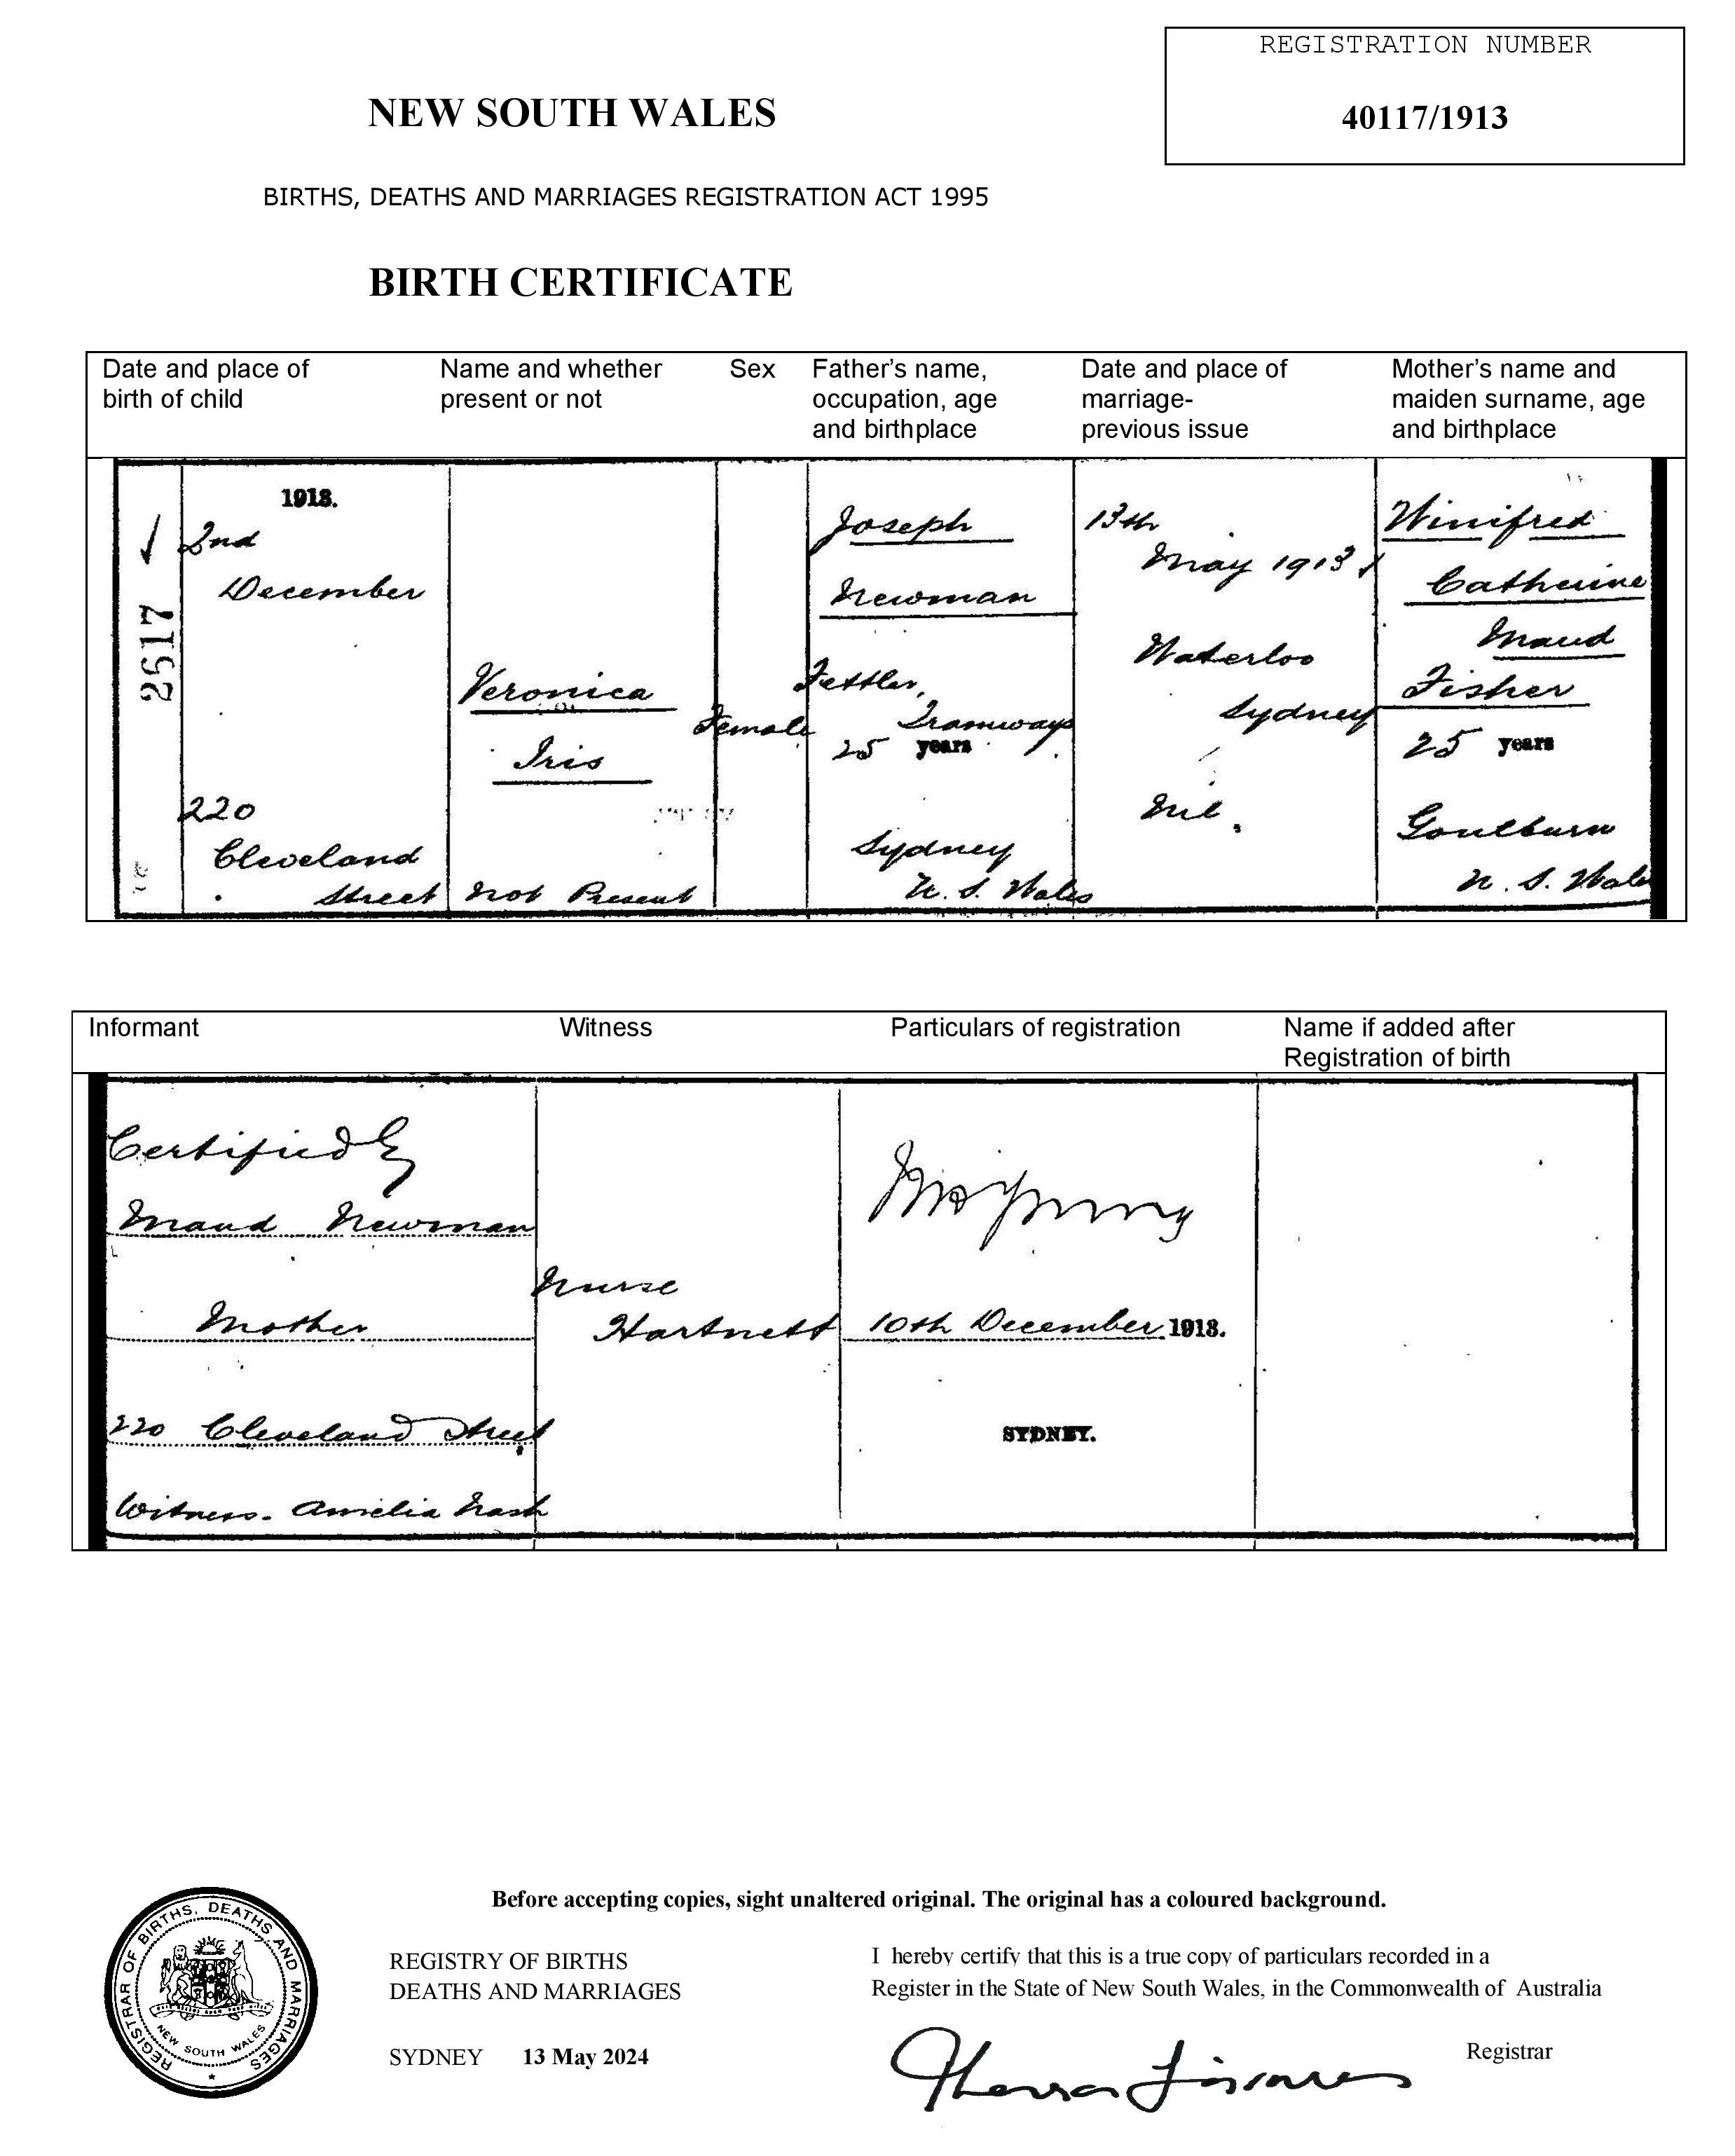 REGISTRATION NUMBER
40117/1913
NEW SOUTH WALES
BIRTHS, DEATHS AND MARRIAGES REGISTRATION ACT 1995
BIRTH CERTIFICATE
Date and place of
birth of child
Name and whether
present or not
Sex
Father's name,
occupation, age
and birthplace
Date and place of
marriage-
previous issue
Mother's name and
maiden surname, age
and birthplace
2617
1913.
2nd
December
220
Cleveland
Street
Veronica
Iris
Not Present
Female
Joseph
Newman
Fettler,
Tramways
25 years
Sydney
N. S. Wales
13th
May 1913
Waterloo
Sydney
Nil.
Winifred
Catherine
Maud
Fisher
25 years
Goulburn
N. S. Wales
Informant
Witness
Particulars of registration
Name if added after
Registration of birth
Certified by
Maud Newman
Mother
220 Cleveland Street
Witness. Amelia Nash
Nurse
Hartnett
10th December 1913.
SYDNEY.
Before accepting copies, sight unaltered original. The original has a coloured background.
REGISTRAR OF BIRTHS, DEATHS AND MARRIAGES
NEW SOUTH WALES
REGISTRY OF BIRTHS
DEATHS AND MARRIAGES
SYDNEY 13 May 2024
I hereby certify that this is a true copy of particulars recorded in a
Register in the State of New South Wales, in the Commonwealth of Australia
Registrar